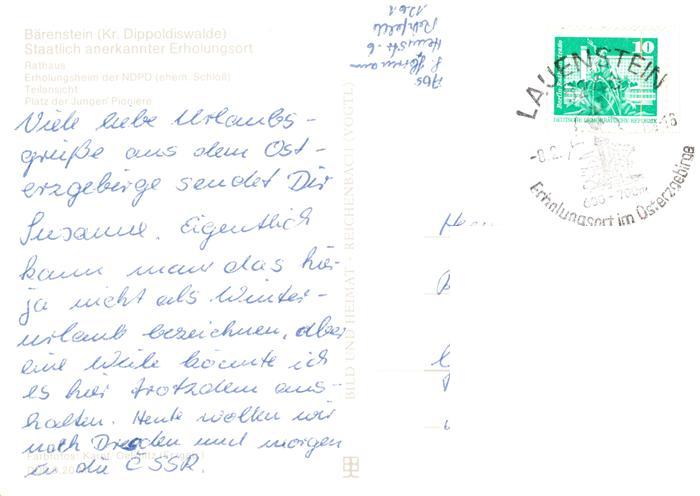 Bärenstein (Kr. Dippoldiswalde)
Staatlich anerkannter Erholungsort
Rathaus
Erholungsheim der NDPD (ehem. Schloß)
Teilansicht
Platz der Jungen Pioniere
Viele liebe Urlaubs-
grüße aus dem Ost-
erzgebirge sendet Dir
Susanne. Eigentlich
kann man das hier
ja nicht als Winter-
urlaub bezeichnen, aber
eine Weile könnte ich
es hier trotzdem aus-
halten. Heute wollen wir
nach Dresden und morgen
in die ČSSR.
Farbfotos:
BILD UND HEIMAT · REICHENBACH (VOGTL)
Abs
6
1261
10
DEUTSCHE DEMOKRATISCHE REPUBLIK
LAUENSTEIN
-8.2.
-16
600-700m
Erholungsort im Osterzgebirge